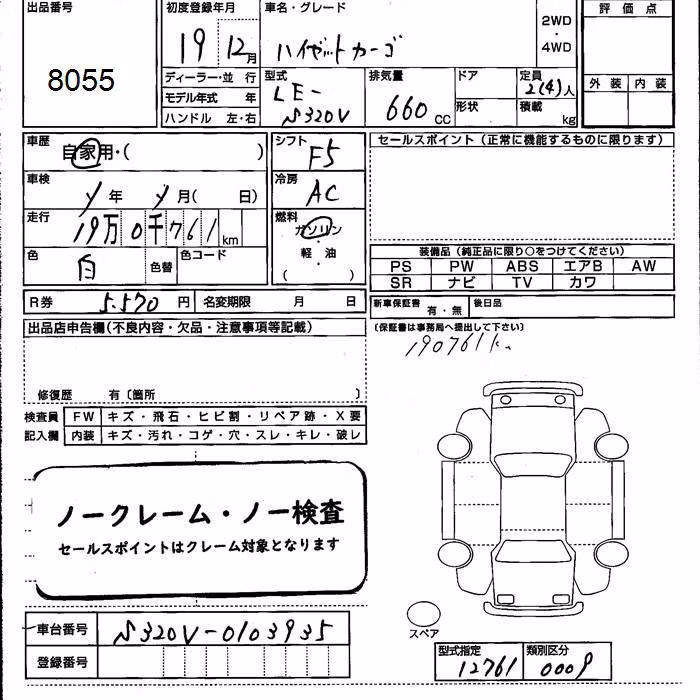 出品番号
8055
初度登録年月
19 12月
車名・グレード
ハイゼットカーゴ
2WD
・
4WD
評価点
外装 内装
ディーラー・並行
モデル年式 年
ハンドル 左・右
型式
LE-
S320V
排気量
660 CC
ドア
形状
定員
2(4)人
積載
kg
車歴
自家用・( )
シフト
F5
セールスポイント(正常に機能するものに限ります)
車検
年 月( 日)
冷房
AC
走行
19万0千761km
燃料
ガソリン
・
軽油
( )
色
白
色替
色コード
装備品(純正品に限り○をつけてください)
PS PW ABS エアB AW
SR ナビ TV カワ
R券 5.570円 名変期限 月 日
新車保証書 有・無 後日品
(保証書は事務局へ提出して下さい)
190761k
出品店申告欄(不良内容・欠品・注意事項等記載)
修復歴 有〔箇所 〕
検査員 FW キズ・飛石・ヒビ割・リペア跡・X要
記入欄 内装 キズ・汚れ・コゲ・穴・スレ・キレ・破レ
ノークレーム・ノー検査
セールスポイントはクレーム対象となります
スペア
車台番号 S320V-0103935
登録番号
型式指定 12761
類別区分 0009